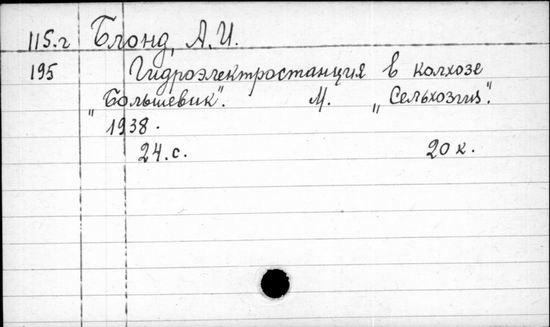 115.г Блонд, А.И.
195 Гидроэлектростанция в колхозе
„Большевик". М. „Сельхозгиз".
1938.
24.с. 20 к.